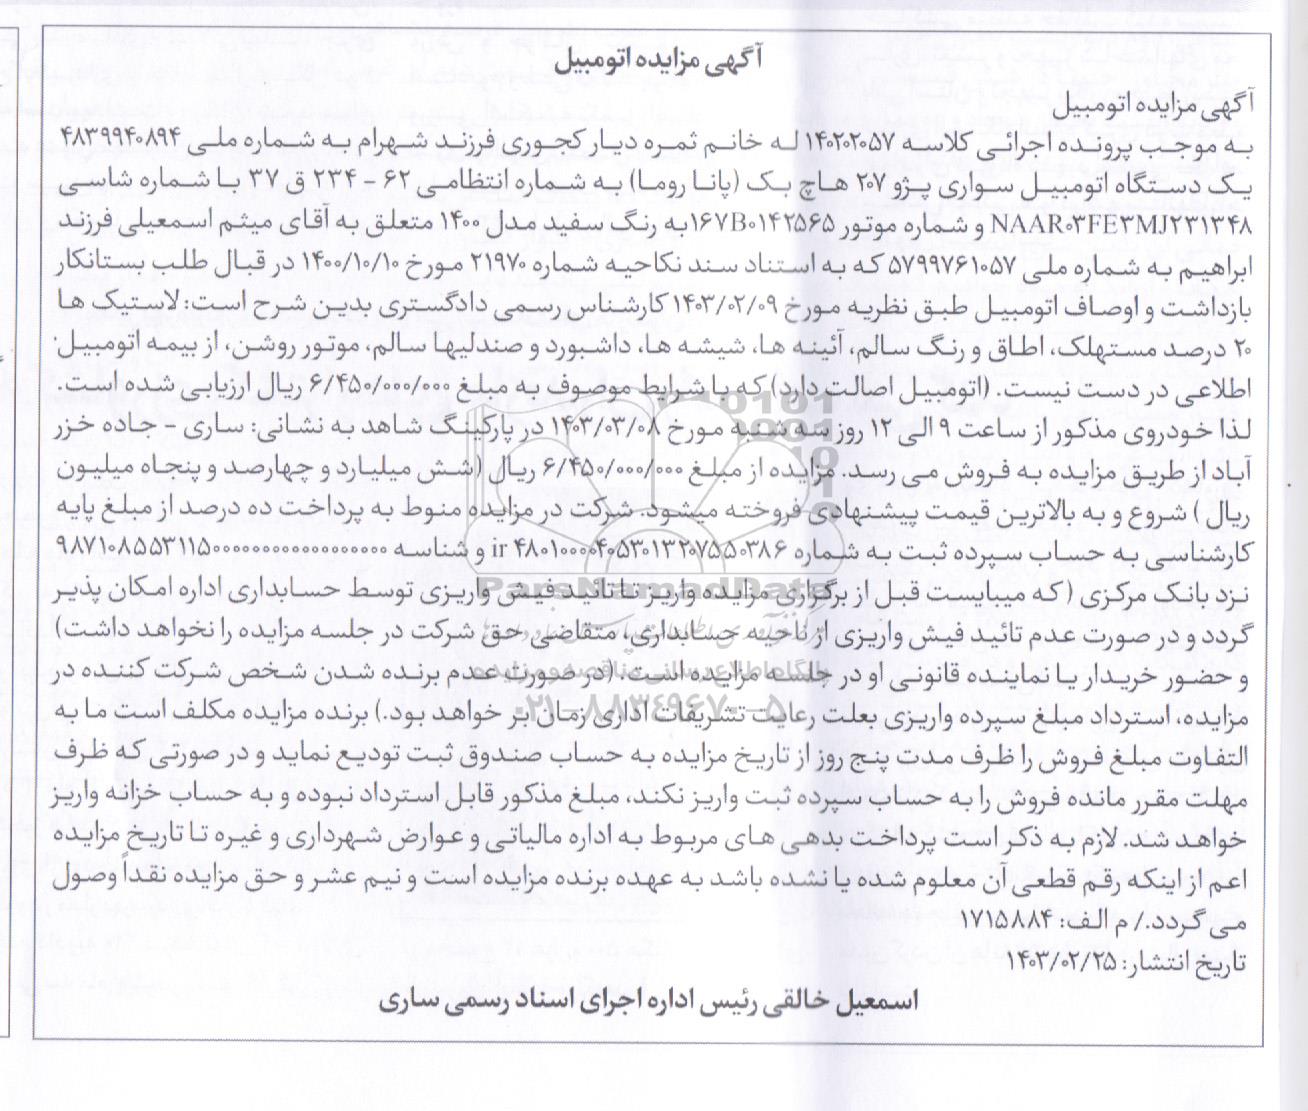 آگهی مزایده اتومبیل
آگهی مزایده اتومبیل
به موجب پرونده اجرائی کلاسه ۱۴۰۲۰۲۰۵۷ له خانم ثمره دبار کجوری فرزند شهرام به شماره ملی ۴۸۳۹۹۴۰۸۹۴
یک دستگاه اتومبیل سواری پژو ۲۰۷ هاچ بک (پانا روما) به شماره انتظامی ۶۲ - ۲۳۴ ق ۳۷ با شماره شاسی
NAAR۰۳FE۳MJ۲۳۱۳۴۸ و شماره موتور ۱۶۷B۰۱۴۲۵۶۵به رنگ سفید مدل ۱۴۰۰ متعلق به آقای میثم اسمعیلی فرزند
ابراهیم به شماره ملی ۵۷۹۹۷۶۱۰۵۷ که به استناد سند نکاحیه شماره ۲۱۹۷۰ مورخ ۱۴۰۰/۱۰/۱۰ در قبال طلب بستانکار
بازداشت و اوصاف اتومبیل طبق نظریه مورخ ۱۴۰۳/۰۲/۰۹ کارشناس رسمی دادگستری بدین شرح است: لاستیک ها
۲۰ درصد مستهلک، اطاق و رنگ سالم، آئینه ها، شیشه ها، داشبورد و صندلیها سالم، موتور روشن، از بیمه اتومبیل
اطلاعی در دست نیست. (اتومبیل اصالت دارد) که با شرایط موصوف به مبلغ ۶/۴۵۰/۰۰۰/۰۰۰ ریال ارزیابی شده است.
لذا خودروی مذکور از ساعت ۹ الی ۱۲ روز سه شنبه مورخ ۱۴۰۳/۰۳/۰۸ در پارکینگ شاهد به نشانی: ساری - جاده خزر
آباد از طریق مزایده به فروش می رسد. مزایده از مبلغ ۶/۴۵۰/۰۰۰/۰۰۰ ریال (شش میلیارد و چهارصد و پنجاه میلیون
ریال ) شروع و به بالاترین قیمت پیشنهادی فروخته میشود. شرکت در مزایده منوط به پرداخت ده درصد از مبلغ پایه
کارشناسی به حساب سپرده ثبت به شماره ir ۴۸۰۱۰۰۰۰۴۰۵۳۰۱۳۲۰۷۵۵۰۳۸۶ و شناسه
نزد بانک مرکزی ( که میبایست قبل از برگزاری مزایده واریز تا تائید فیش واریزی توسط حسابداری اداره امکان پذیر
گردد و در صورت عدم تائید فیش واریزی از ناحیه حسابداری، متقاضی حق شرکت در جلسه مزایده را نخواهد داشت)
و حضور خریدار یا نماینده قانونی او در جلسه مزایده است. (در صورت عدم برنده شدن شخص شرکت کننده در
مزایده، استرداد مبلغ سپرده واریزی بعلت رعایت تشریفات اداری زمان بر خواهد بود.) برنده مزایده مکلف است ما به
التفاوت مبلغ فروش را ظرف مدت پنج روز از تاریخ مزایده به حساب صندوق ثبت تودیع نماید و در صورتی که ظرف
مهلت مقرر مانده فروش را به حساب سپرده ثبت واریز نکند، مبلغ مذکور قابل استرداد نبوده و به حساب خزانه واریز
خواهد شد. لازم به ذکر است پرداخت بدهی های مربوط به اداره مالیاتی و عوارض شهرداری و غیره تا تاریخ مزایده
اعم از اینکه رقم قطعی آن معلوم شده یا نشده باشد به عهده برنده مزایده است و نیم عشر و حق مزایده نقداً وصول
می گردد./ م الف: ۱۷۱۵۸۸۴
تاریخ انتشار: ۱۴۰۳/۰۲/۲۵
اسمعیل خالقی رئیس اداره اجرای اسناد رسمی ساری
ParsNamadData
پایگاه اطلاع رسانی مناقصه و مزایده
۰۲۱-۸۸۳۴۹۶۷۰-۵